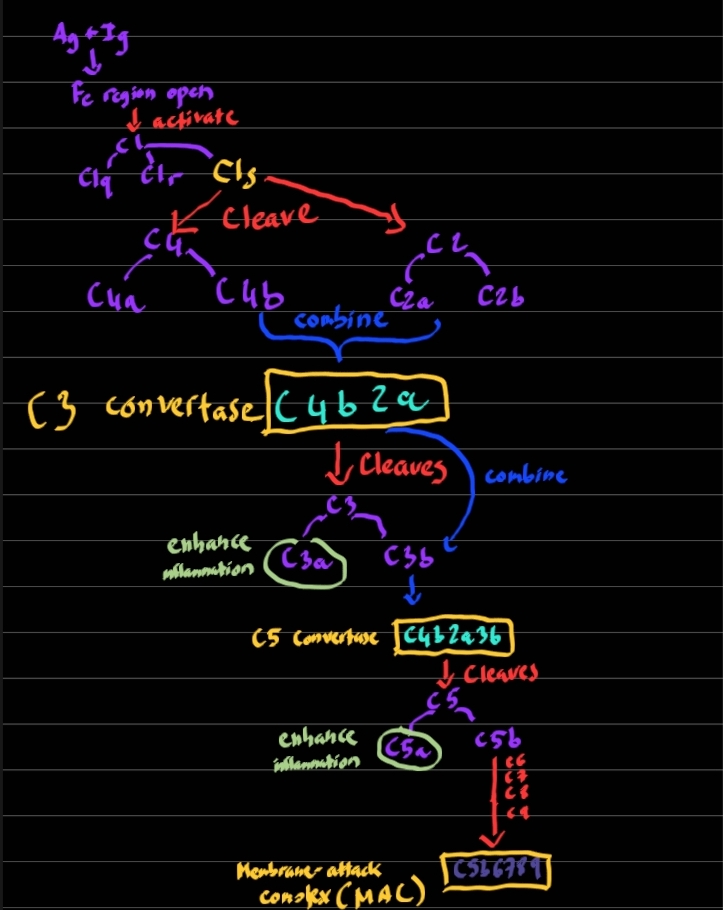 Ag + Ig
Fc region open
activate
C1
C1q C1r C1s
Cleave
C4 C2
C4a C4b C2a C2b
combine
C3 convertase C4b2a
Cleaves
combine
C3
enhance
inflammation
C3a C3b
C5 convertase C4b2a3b
Cleaves
C5
enhance
inflammation
C5a C5b
C6
C7
C8
C9
Membrane-attack
complex (MAC)
C5b6789